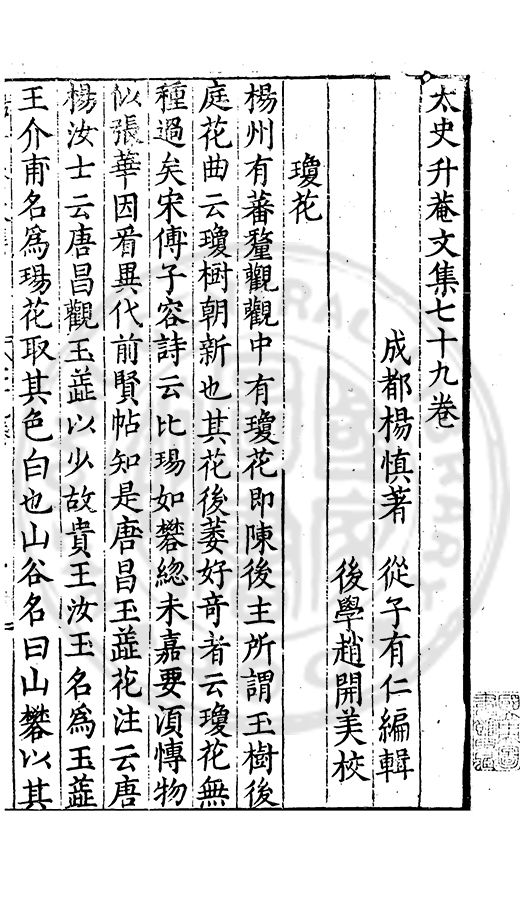 太史升菴文集七十九卷
成都楊慎著　從子有仁編輯
後學趙開美校
瓊花
楊州有蕃釐觀觀中有瓊花即陳後主所謂玉樹後
庭花曲云瓊樹朝新也其花後萎好竒者云瓊花無
種過矣宋傅子容詩云比瑒如礬総未嘉要湏愽物
似張華因㸔異代前賢帖知是唐昌玉蘂花注云唐
楊汝士云唐昌觀玉蘂以少故貴王汝玉名爲玉蘂
王介甫名爲瑒花取其色白也山谷名曰山礬以其